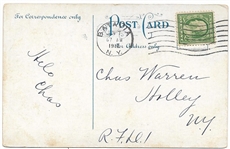 For Correspondence only
POST CARD
N.Y.
Helo
Chas
Chas Warren
Holley
NY
R.F.D.1